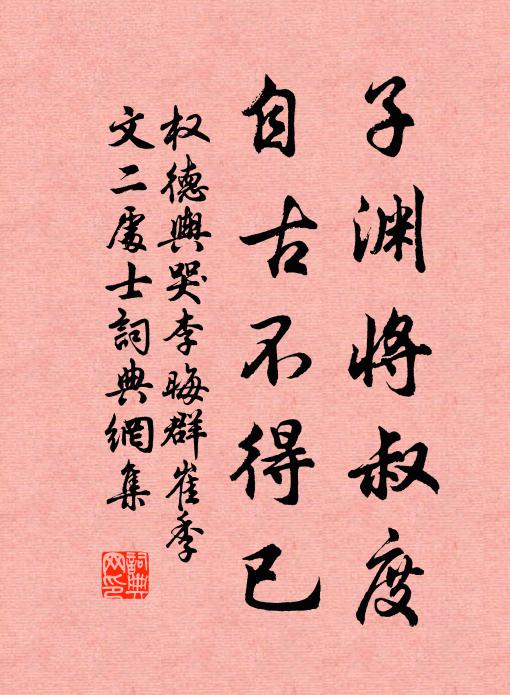 子渊将叔度
自古不得已
权德舆哭李晦群崔季
文二处士詞典網集
詞典
网印